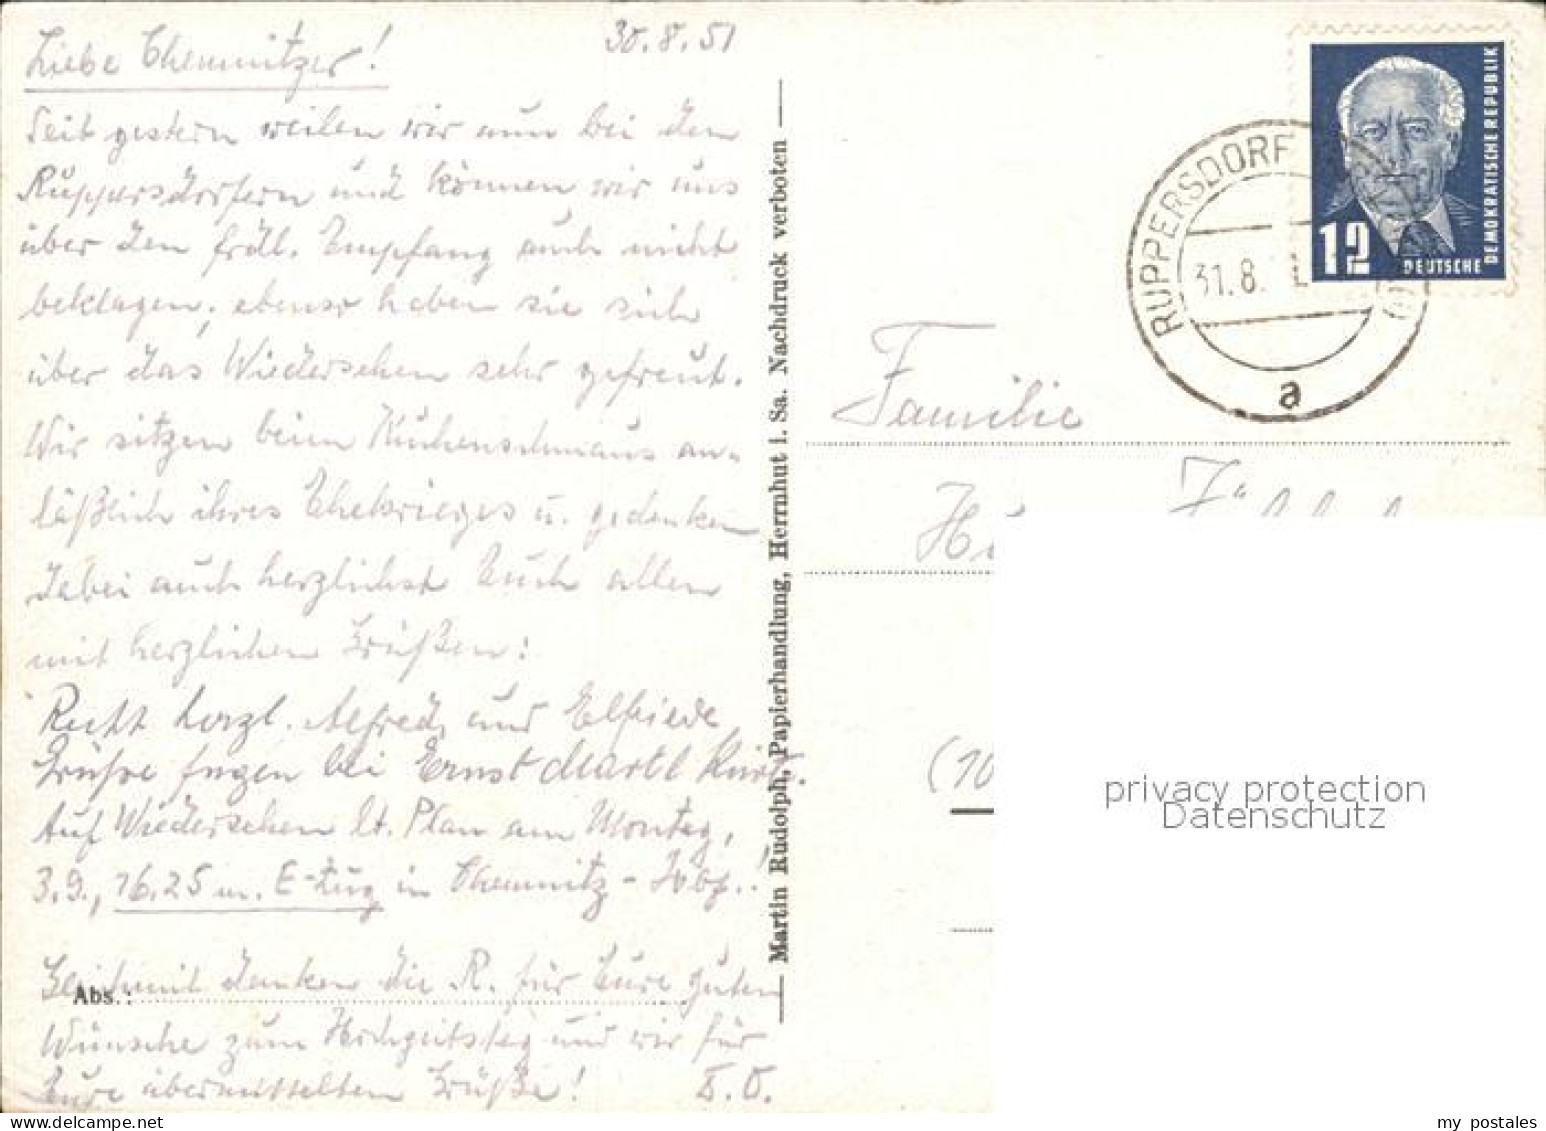 30.8.51
Liebe Chemnitzer!
Seit gestern weilen wir nun bei den
Ruppersdorfern und können wir uns
über den frdl. Empfang auch nicht
beklagen, ebenso haben sie sich
über das Wiedersehen sehr gefreut.
Wir sitzen beim Kuchenschmaus an-
läßlich ihres Ehekrieges u. gedenken
dabei auch herzlichst Euch allen
mit herzlichen Grüßen:
Recht herzl. Alfred und Elfriede
Grüsse fügen bei Ernst Martl Kurt.
Auf Wiedersehen lt. Plan am Montag,
3.9., 16.25 m. E-Zug in Chemnitz-Hbf.!
Gleich mit danken die R. für Eure guten
Abs.:
Wünsche zum Hochzeitstag und wir für
Eure übermittelten Grüße! D.O.
Martin Rudolph, Papierhandlung, Herrnhut i. Sa. Nachdruck verboten
RUPPERSDORF
31.8.
a
12
DEUTSCHE
DEMOKRATISCHE REPUBLIK
Familie
(10
privacy protection
Datenschutz
my postales